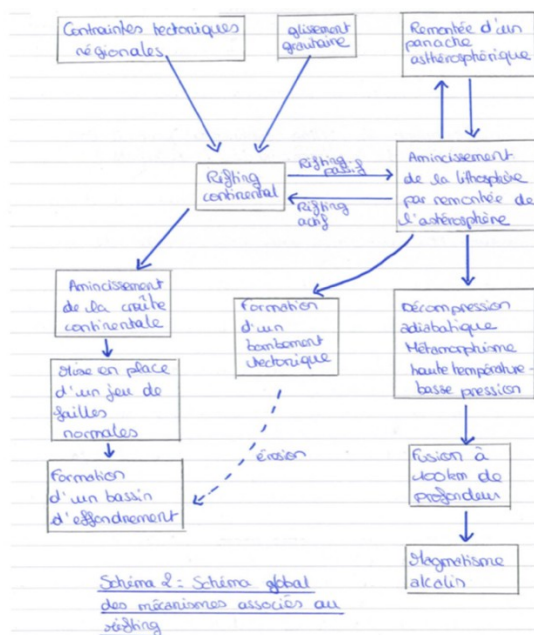 Contraintes tectoniques
régionales
glissement
gravitaire
Remontée d'un
panache
asthérosphérique
Rifting
continental
Rifting
passif
Rifting
actif
Amincissement
de la lithosphère
par remontée de
l'astérosphère
Amincissement
de la croûte
continentale
Formation
d'un
bombement
tectonique
Décompression
adiabatique
Métamorphisme
haute température -
basse pression
Mise en place
d'un jeu de
failles
normales
érosion
Formation
d'un bassin
d'effondrement
Fusion à
100km de
profondeur
Magmatisme
alcalin
Schéma 2 = Schéma global
des mécanismes associés au
rifting